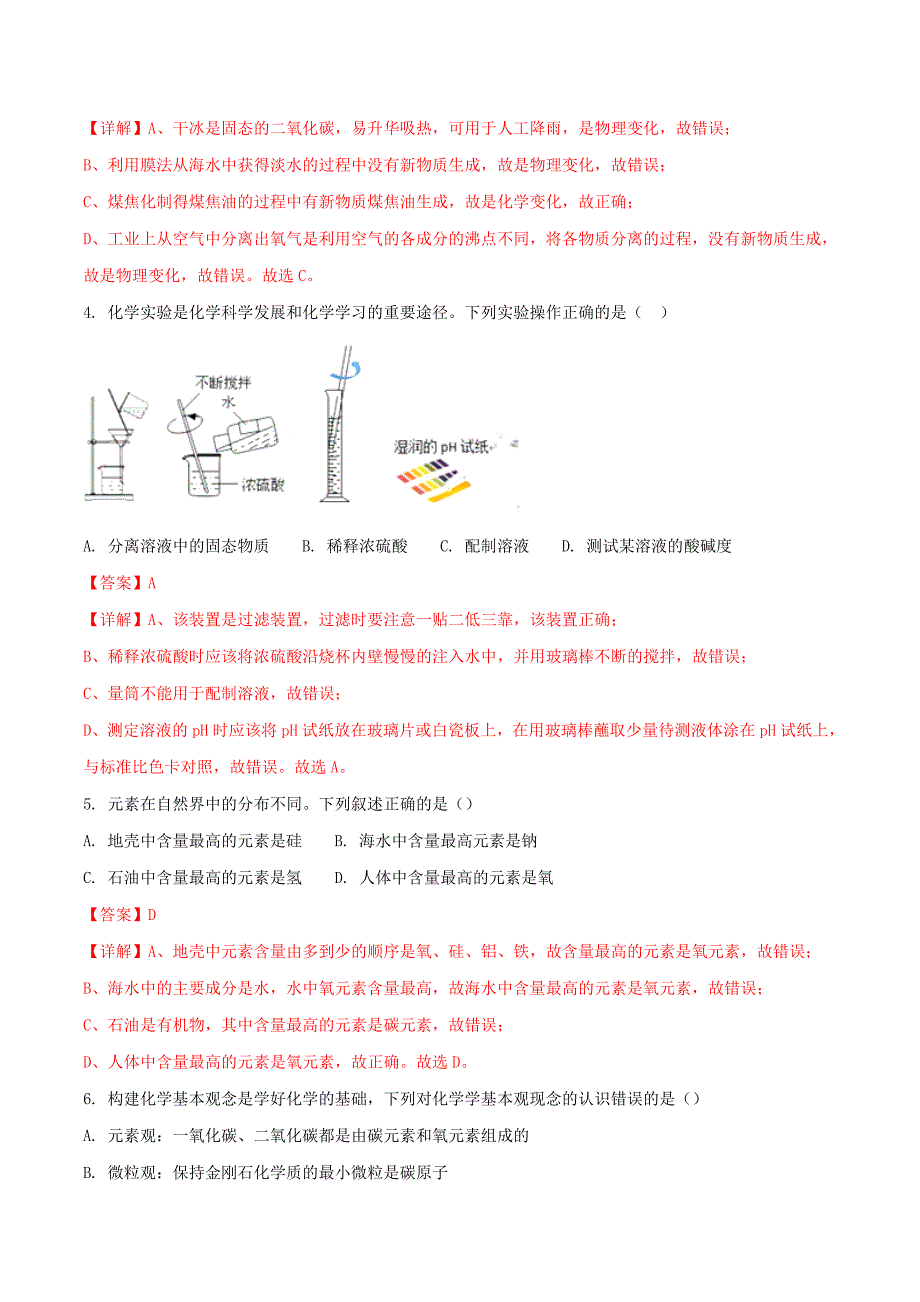 【详解】A、干冰是固态的二氧化碳，易升华吸热，可用于人工降雨，是物理变化，故错误；
B、利用膜法从海水中获得淡水的过程中没有新物质生成，故是物理变化，故错误；
C、煤焦化制得煤焦油的过程中有新物质煤焦油生成，故是化学变化，故正确；
D、工业上从空气中分离出氧气是利用空气的各成分的沸点不同，将各物质分离的过程，没有新物质生成，
故是物理变化，故错误。故选C。
4. 化学实验是化学科学发展和化学学习的重要途径。下列实验操作正确的是（ ）
不断搅拌
水
浓硫酸
湿润的pH试纸
A. 分离溶液中的固态物质 B. 稀释浓硫酸 C. 配制溶液 D. 测试某溶液的酸碱度
【答案】A
【详解】A、该装置是过滤装置，过滤时要注意一贴二低三靠，该装置正确；
B、稀释浓硫酸时应该将浓硫酸沿烧杯内壁慢慢的注入水中，并用玻璃棒不断的搅拌，故错误；
C、量筒不能用于配制溶液，故错误；
D、测定溶液的pH时应该将pH试纸放在玻璃片或白瓷板上，在用玻璃棒蘸取少量待测液体涂在pH试纸上，
与标准比色卡对照，故错误。故选A。
5. 元素在自然界中的分布不同。下列叙述正确的是（）
A. 地壳中含量最高的元素是硅 B. 海水中含量最高元素是钠
C. 石油中含量最高的元素是氢 D. 人体中含量最高的元素是氧
【答案】D
【详解】A、地壳中元素含量由多到少的顺序是氧、硅、铝、铁，故含量最高的元素是氧元素，故错误；
B、海水中的主要成分是水，水中氧元素含量最高，故海水中含量最高的元素是氧元素，故错误；
C、石油是有机物，其中含量最高的元素是碳元素，故错误；
D、人体中含量最高的元素是氧元素，故正确。故选D。
6. 构建化学基本观念是学好化学的基础，下列对化学学基本观现念的认识错误的是（）
A. 元素观：一氧化碳、二氧化碳都是由碳元素和氧元素组成的
B. 微粒观：保持金刚石化学质的最小微粒是碳原子